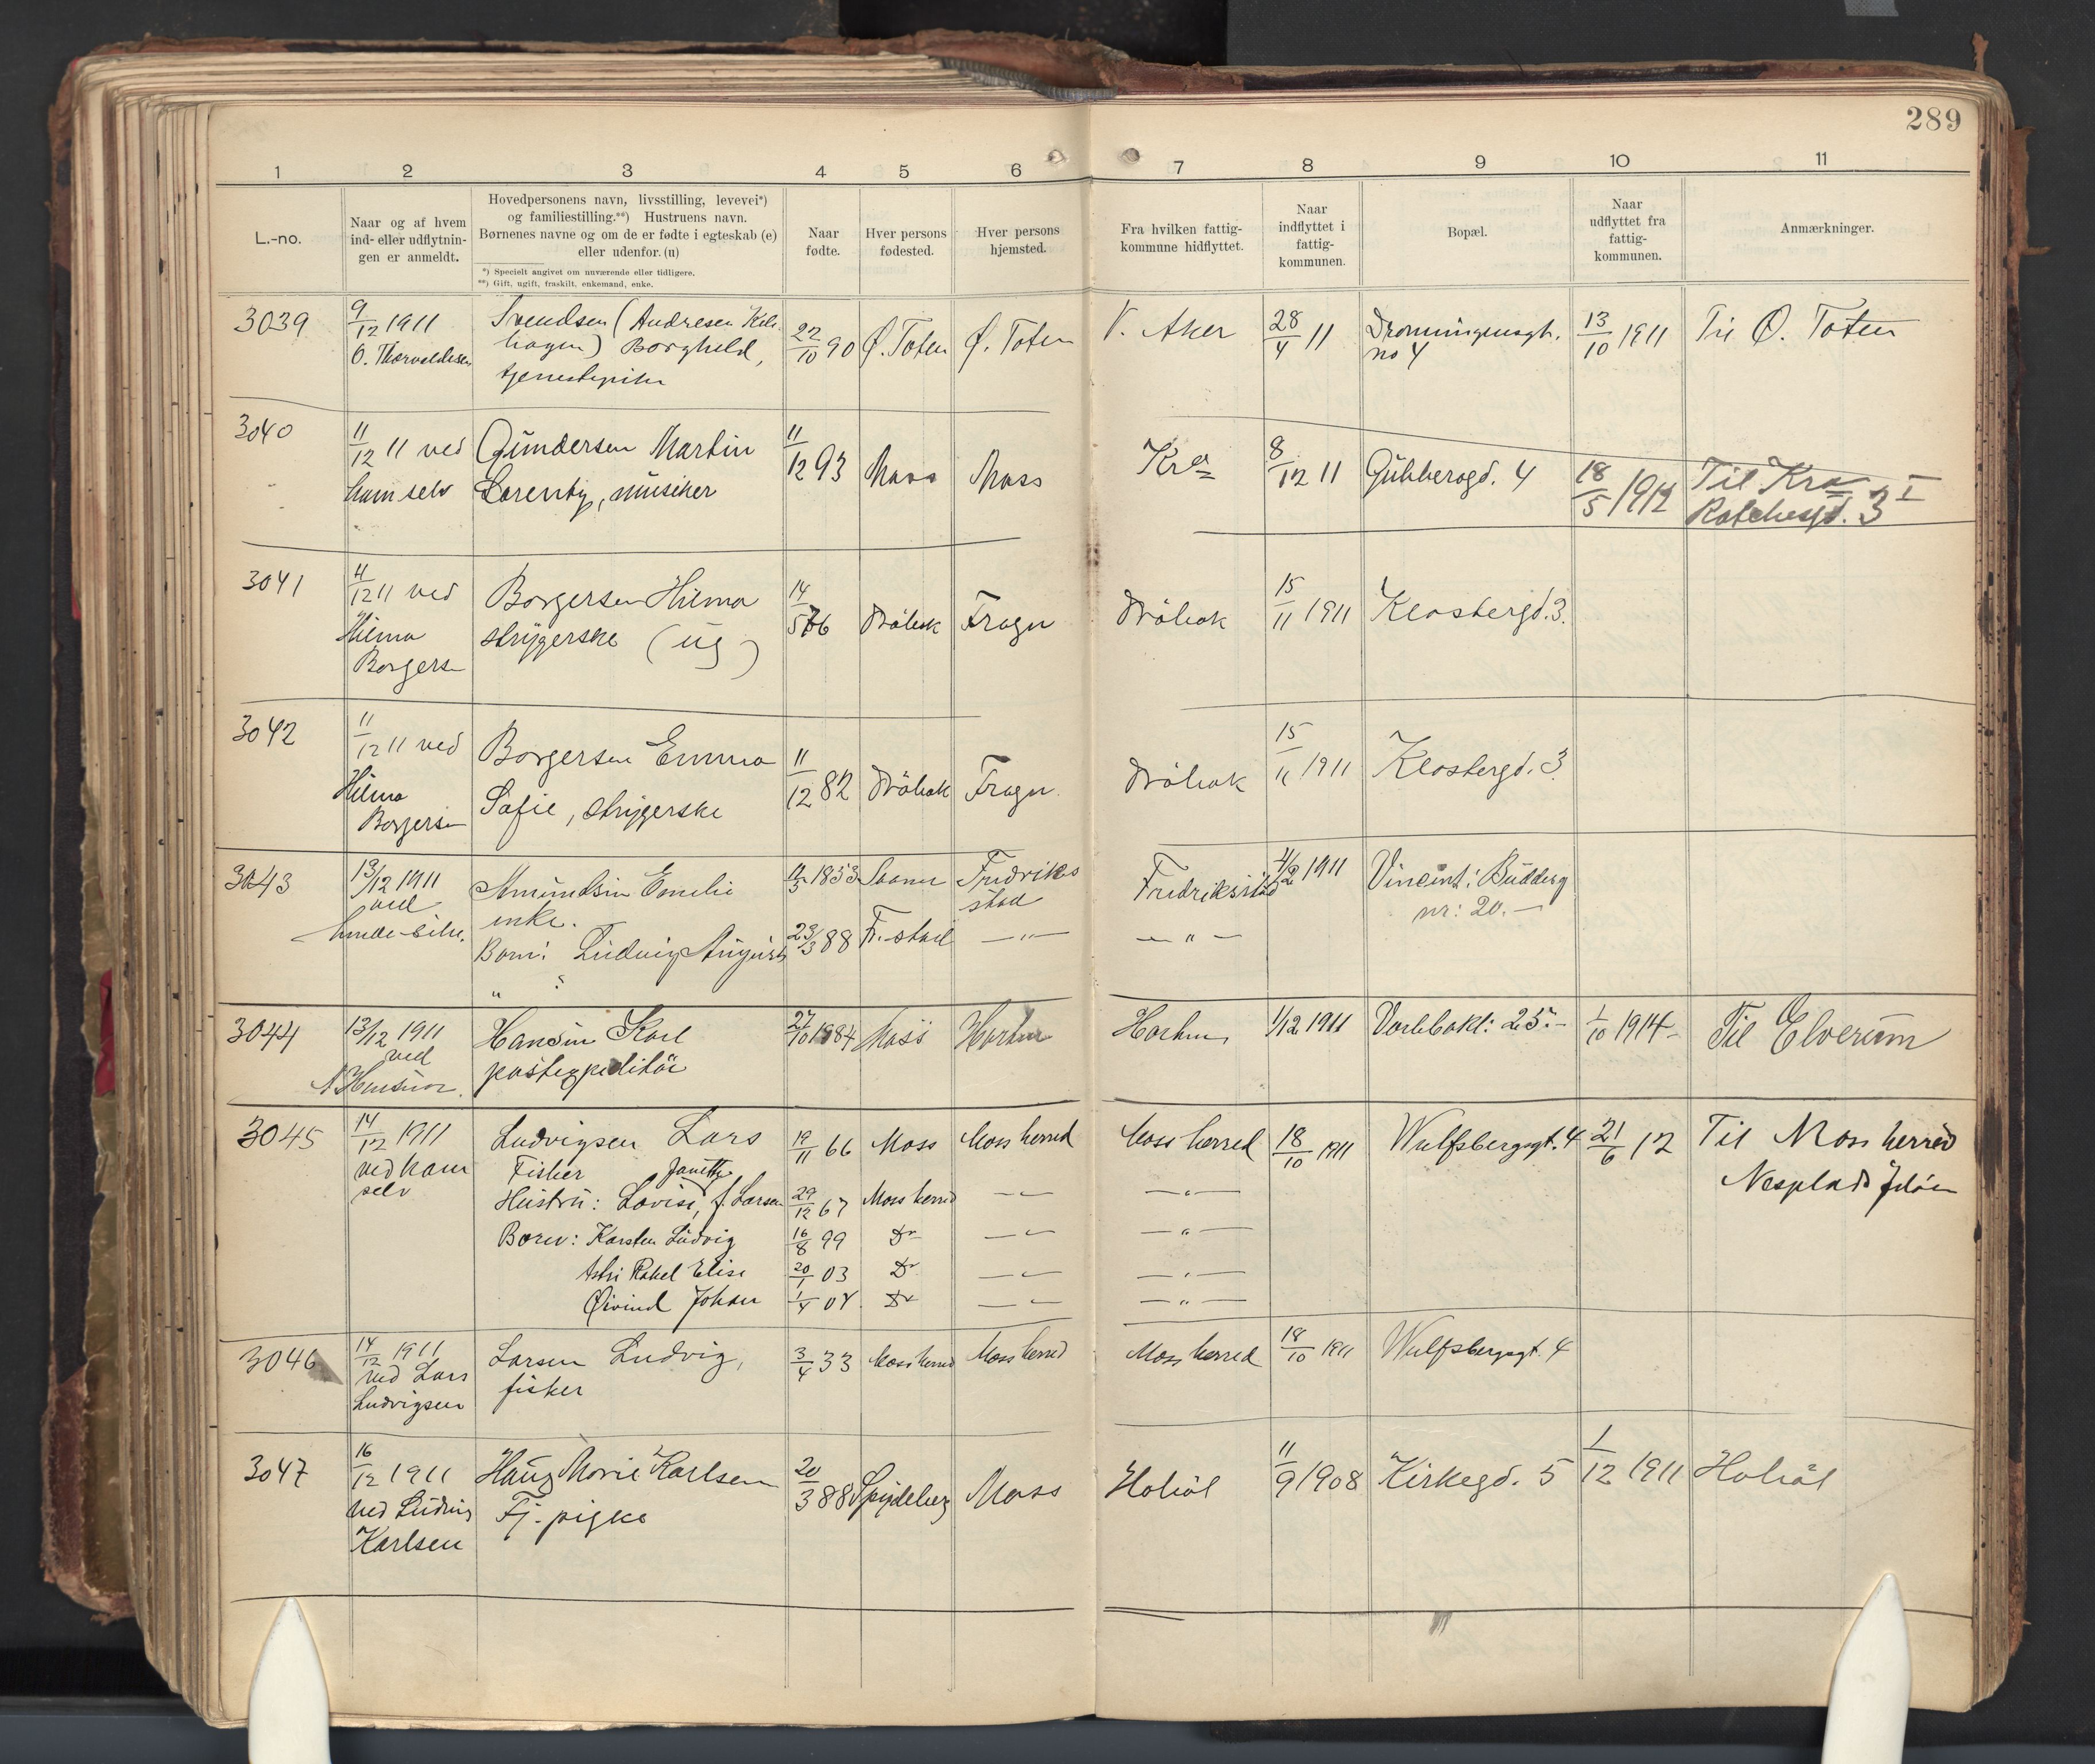 289
1 2 3 4 5 6 7 8 9 10 11
L.-no.
Naar og af hvem
ind- eller udflytnin-
gen er anmeldt.
Hovedpersonens navn, livsstilling, levevei*)
og familiestilling.**) Hustruens navn.
Børnenes navne og om de er fødte i egteskab (e)
eller udenfor. (u)
*) Specielt angivet om nuværende eller tidligere.
**) Gift, ugift, fraskilt, enkemand, enke.
Naar
fødte.
Hver persons
fødested.
Hver persons
hjemsted.
Fra hvilken fattig-
kommune hidflyttet.
Naar
indflyttet i
fattig-
kommunen.
Bopæl.
Naar
udflyttet fra
fattig-
kommunen.
Anmærkninger.
3039
9/12 1911
O. Thorvaldsen
Svendsen (Andresen
hagen) Borghild,
22/10 90
Ø. Toten
Ø. Toten
V. Aker
28/4 11
Dronningensgt.
no 4
13/10 1911
Til Ø. Toten
3040
11/12 11 ved
ham selv
Gundersen Martin
Lorentz, musiker
11/12 93
Moss
Moss
Kra
8/12 11
4
18/5 1912
Til Kra
3 I
3041
11/12 11 ved
Hilma
Borgersen
Borgersen Hilma
strygerske (ug)
14/5 76
Drøbak
Frogn
Drøbak
15/11 1911
Klostergd. 3.
3042
11/12 11 ved
Hilma
Borgersen
Borgersen Emma
Sofie, strygerske
11/12 82
Drøbak
Frogn
Drøbak
15/11 1911
Klostergd. 3.
3043
13/12 1911
ved
Amundsen Emilie
enke.
Born: Ludvig August
" :
1853
23/3 88
Fr.stad
Fredriks
stad
— " —
Fredriksstad
— " —
1911
Vincent: Buddesg
nr: 20. —
3044
13/12 1911
ved
Hansen Karl
postexpeditör
27/10 1884
Moss
Horten
Horten
1/12 1911
25. —
1/10 1914 —
Til Elverum
3045
14/12 1911
ved ham
selv
Ludvigsen Lars
Fisker
Janette
Hustru: Lovise, f. Larsen
Born: Karsten Ludvig
Astri Rakel Elise
Øivind Johan
19/11 66
29/12 67
16/8 99
20/1 03
1/4 07
Moss
Moss herred
Do
Do
Do
Moss herred
— " —
— " —
— " —
— " —
Moss herred
— " —
— " —
— " —
— " —
18/10 1911
Wulfsbergsgt. 4
21/6 12
Til Moss herred
Nesplads Jeløen
3046
14/12 1911
ved Lars
Ludvigsen
Larsen Ludvig,
fisker
3/4 33
Moss herred
Moss herred
Moss herred
18/10 1911
Wulfsbergsgt. 4
3047
16/12 1911
ved Ludvig
Karlsen
Marie Karlsen
Tj. pige
20/3 88
Spydeberg
Moss
Hobøl
11/9 1908
Kirkegd. 5
1/12 1911
Hobøl